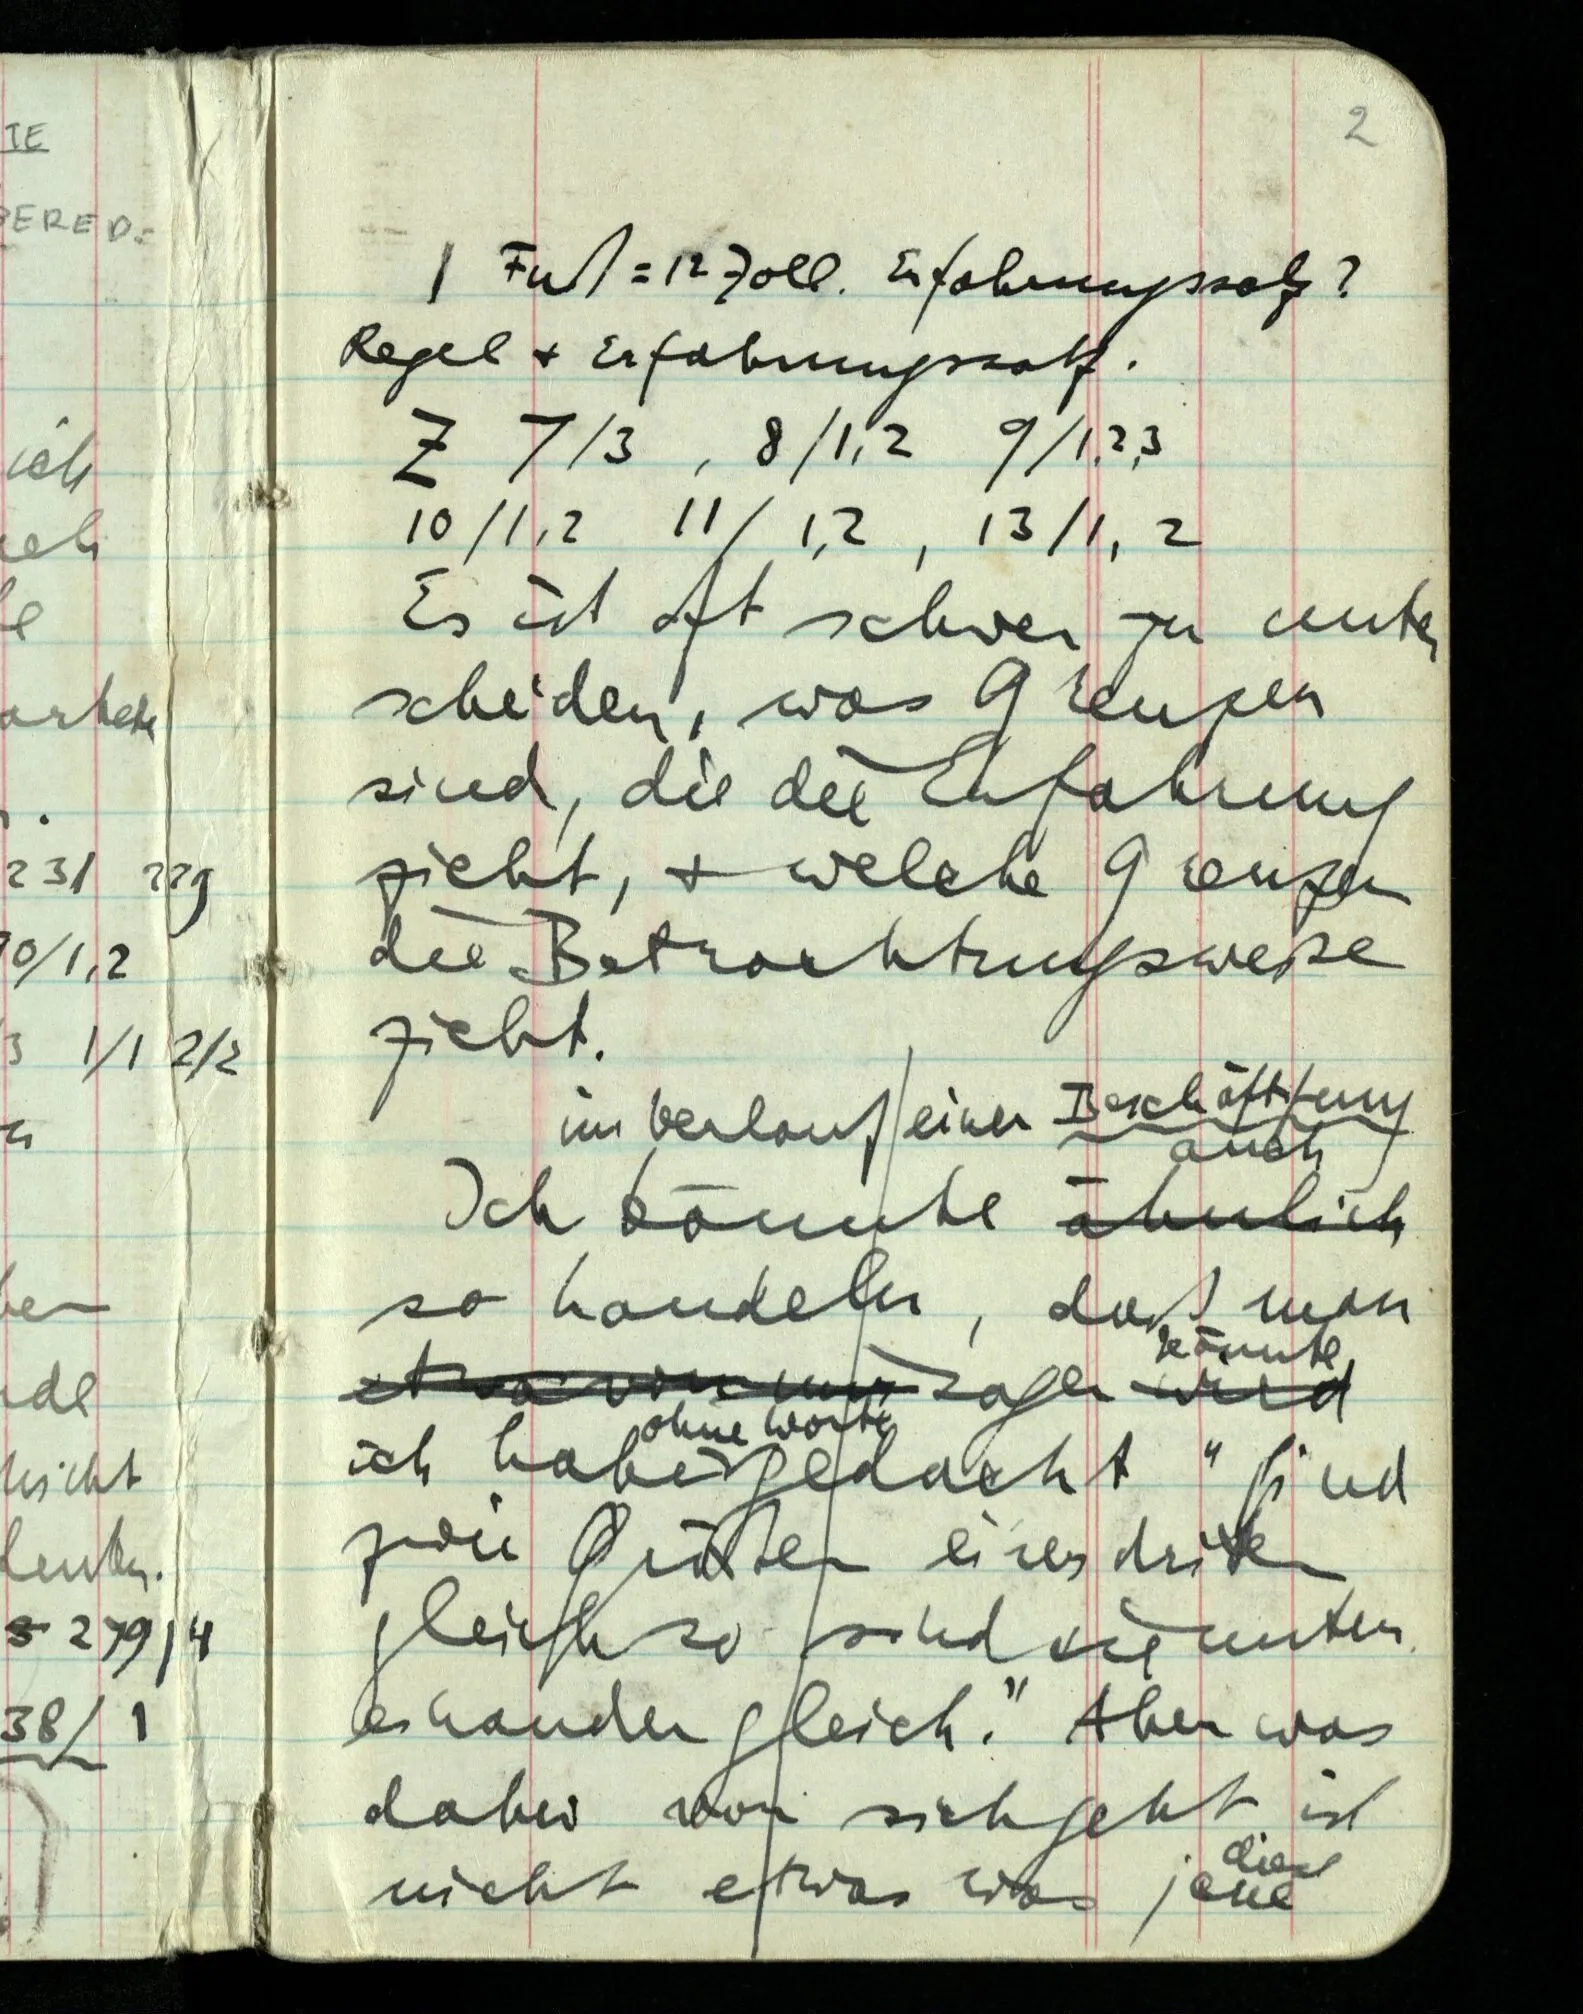 IE
BERED=
ich
arbeite
231 229
90/1,2
3 1/1 2/2
nicht
279/4
38/1
2
1 Fuß=12 Zoll. Erfahrungssatz?
Regel + Erfahrungssatz.
Z 7/3 , 8/1,2 9/1,2,3
10/1,2 11/1,2 , 13/1,2
Es ist oft schwer zu unter
scheiden, was Grenzen
sind, die die Erfahrung
zieht, + welche Grenzen
die Betrachtungsweise
zieht.
im Verlauf einer Beschäftigung
auch
Ich könnte ähnlich
so handeln, daß man
könnte
etwa von mir sagen wird
ohne Worte
ich habe gedacht "sind
zwei Größen einer dritten
gleich so sind sie unter
einander gleich." Aber was
dabei vor sich geht ist
diese
nicht etwas was jene